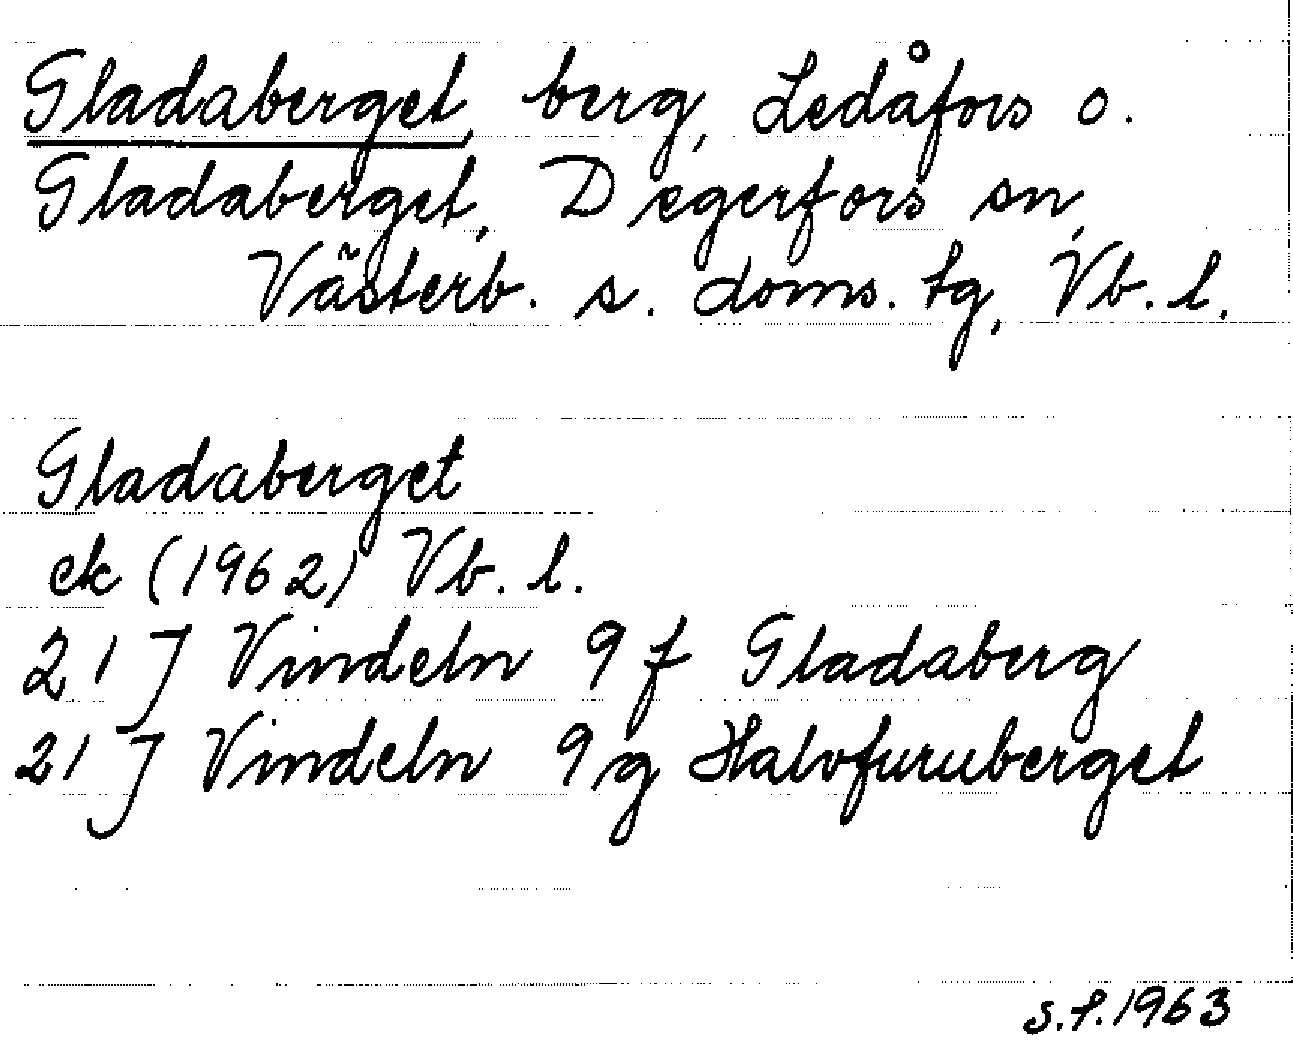 Gladaberget, berg, Ledåfors o.
Gladaberget, Degerfors sn,
Västerb. s. doms. tg, Vb. l.
Gladaberget
ek (1962) Vb. l.
21 J Vindeln 9 f Gladaberg
21 J Vindeln 9 g Halvfuruberget
s.f. 1963